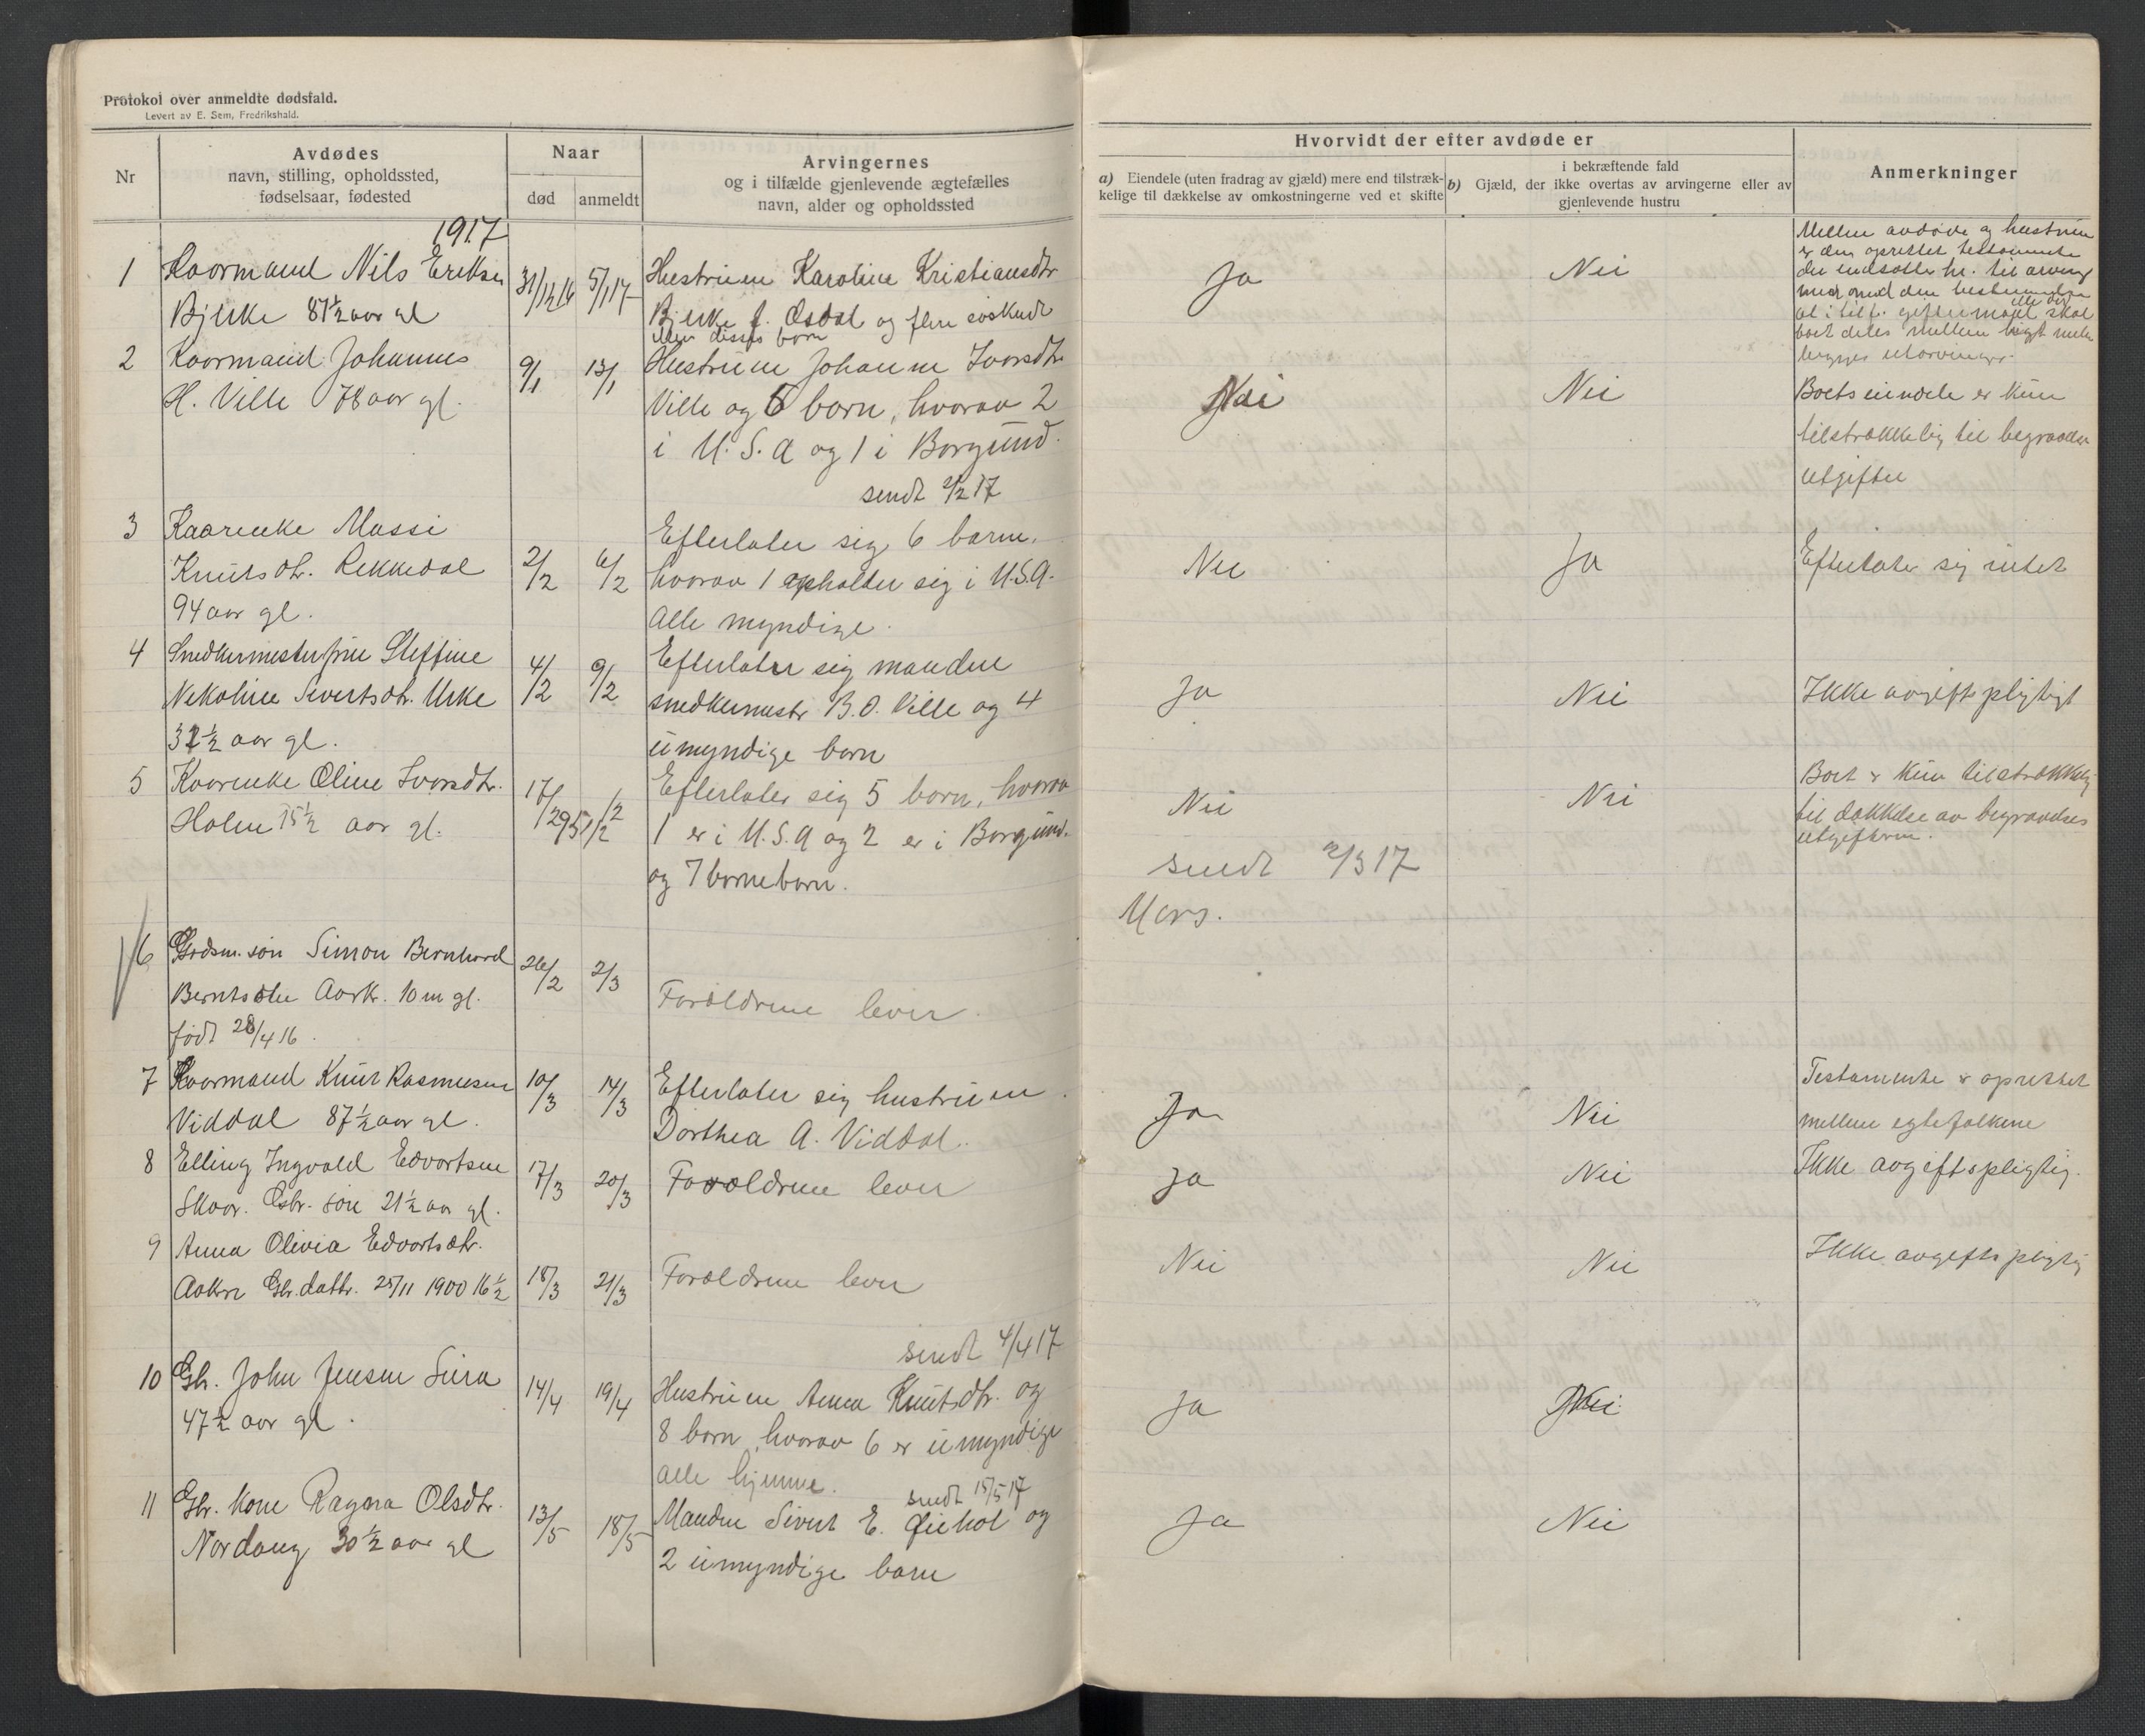 Protokol over anmeldte dødsfald.
Levert av E. Sem, Fredrikshald.
Nr
Avdødes
navn, stilling, opholdssted,
fødselsaar, fødested
Naar
død
anmeldt
Arvingernes
og i tilfælde gjenlevende ægtefælles
navn, alder og opholdssted
Hvorvidt der efter avdøde er
a) Eiendele (uten fradrag av gjæld) mere end tilstræk-
kelige til dækkelse av omkostningerne ved et skifte
i bekræftende fald
b) Gjæld, der ikke overtas av arvingerne eller av
gjenlevende hustru
Anmerkninger
1917
1 Kaarmand Nils Eriksen
Bjerke 87½ aar gl
31/12 16
5/1 17
Hustruen Karoline Kristiansdtr
Bjerke f. Øsdal og flere søskend
eller disses børn
Ja
Nei
Mellem avdøde og hustruen
er der oprettet testamente
der indsætter hr. til arving
med den bestemmelse
at i tilf. av giftermaal skal
boet deles mellem
begges utarvinger.
2 Kaarmand Johannes
H. Ville 78 aar gl.
9/1
13/1
Hustruen Johanne Ivarsdtr
Ville og 6 barn, hvorav 2
i U.S.A og 1 i Borgund.
sendt 2/2 17
Nei
Nei
Boets eiendele er kun
tilstrækkelig til begravelses
utgifter
3 Kaarenke Massi
Knutsdtr. Rekkedal
94 aar gl.
2/2
6/2
Efterlater sig 6 barn,
hvorav 1 opholder sig i U.S.A.
Alle myndige.
Nei
Ja
Efterlater sig intet
4 Snedkermesterfrue Steffine
Nekoline Sivertsdtr. Urke
32½ aar gl.
4/2
9/2
Efterlater sig manden
snedkermestr B.O. Ville og 4
umyndige barn
Ja
Nei
Ikke avgiftspligtigt
5 Kaarenke Oline Ivarsdtr.
Holen 75½ aar gl.
17/2
Efterlater sig 5 barn, hvorav
1 er i U.S.A og 2 er i Borgund.
og 7 barnebarn.
Nei
Nei
sendt 2/3 17
Mars.
Boet er kun tilstrækkelig
til dækkelse av begravelses
utgifterne.
6 Grdsm. søn Simon Bernhard
Berntsøn Aarsk. 10 m gl.
født 28/4 16.
26/2
2/3
Foræl­drene lever.
7 Kaarmand Knut Rasmussen
Viddal 87½ aar gl.
10/3
14/3
Efterlater sig hustruen
Dorthea A. Viddal.
Ja
Nei
Testamente er oprettet
mellem egtefolkene
8 Elling Ingvald Edvartsen
Skaar. Gbr. søn 21½ aar gl.
17/3
20/3
Forældrene lever
Ja
Nei
Ikke avgiftspligtig.
9 Anna Olivia Edvartsdtr.
Gbr. dattr. 25/11 1900 16½
18/3
21/3
Forældrene lever
Nei
Nei
Ikke avgiftspligtig
sendt 4/4 17
10 Gbr. John Jensen
47½ aar gl.
14/4
19/4
Hustruen Anna Knutsdtr. og
8 barn, hvorav 6 er umyndige
alle hjemme.
Ja
Nei
sendt 15/5 17
11 Gbr. kone Ragna Olsdtr.
Nordang 30½ aar gl
13/5
18/5
Manden Sivert E. og
2 umyndige barn
Ja
Nei